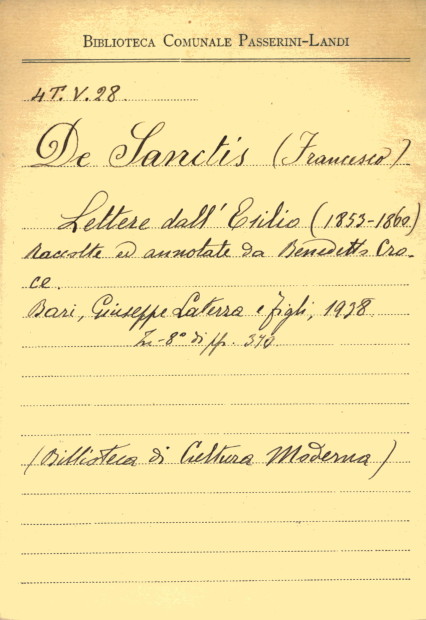 BIBLIOTECA COMUNALE PASSERINI-LANDI
4T.V.28.
De Sanctis (Francesco)
Lettere dall'Esilio (1853-1860)
raccolte ed annotate da Benedetto Cro-
ce.
Bari, Giuseppe Laterza e figli, 1938
In-8° di pp. 370
(Biblioteca di Cultura Moderna)